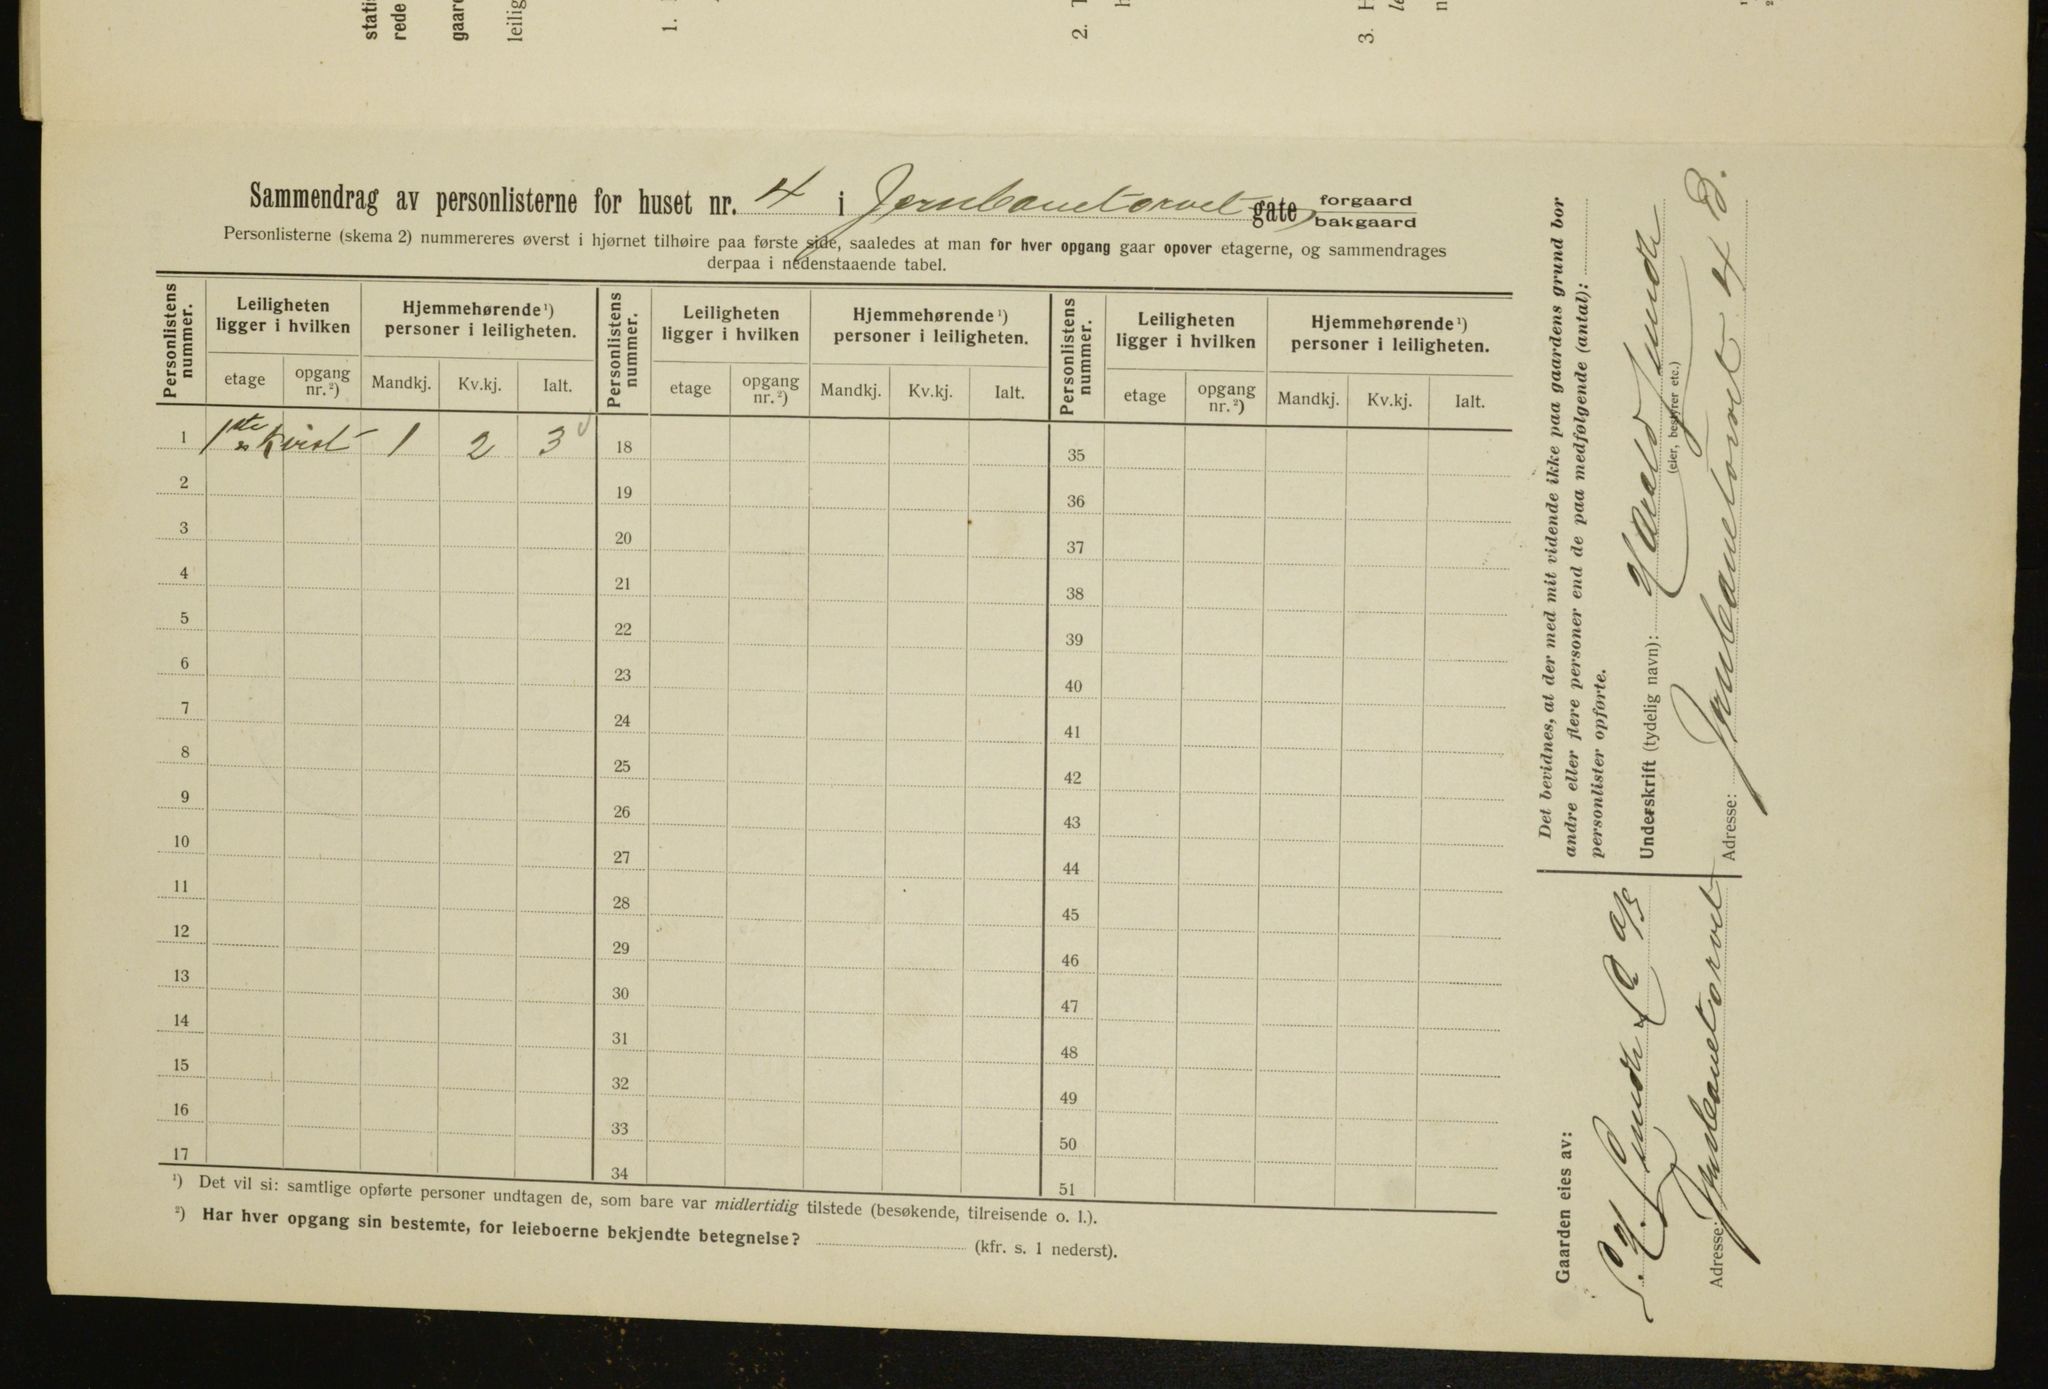 statis
rede
gaare
leilig
1.
2. T
h
3. H
le
n
Sammendrag av personlisterne for huset nr. 4 i Jernbanetorvet gate forgaard
bakgaard
Personlisterne (skema 2) nummereres øverst i hjørnet tilhøire paa første side, saaledes at man for hver opgang gaar opover etagerne, og sammendrages
derpaa i nedenstaaende tabel.
Personlistens nummer. Leiligheten ligger i hvilken Hjemmehørende ¹) personer i leiligheten. Personlistens nummer. Leiligheten ligger i hvilken Hjemmehørende ¹) personer i leiligheten. Personlistens nummer. Leiligheten ligger i hvilken Hjemmehørende ¹) personer i leiligheten.
etage opgang nr. ²) Mandkj. Kv.kj. Ialt. etage opgang nr. ²) Mandkj. Kv.kj. Ialt. etage opgang nr. ²) Mandkj. Kv.kj. Ialt.
1 1ste Kvist 1 2 3 18 35
2 19 36
3 20 37
4 21 38
5 22 39
6 23 40
7 24 41
8 25 42
9 26 43
10 27 44
11 28 45
12 29 46
13 30 47
14 31 48
15 32 49
16 33 50
17 34 51
¹) Det vil si: samtlige opførte personer undtagen de, som bare var midlertidig tilstede (besøkende, tilreisende o. l.).
²) Har hver opgang sin bestemte, for leieboerne bekjendte betegnelse? (kfr. s. 1 nederst).
Gaarden eies av:
Lunde & Co A/S
Adresse: Jernbanetorvet
Det bevidnes, at der med mit vidende ikke paa gaardens grund bor
andre eller flere personer end de paa medfølgende (antal):
personlister opførte.
Underskrift (tydelig navn): Harald Lunde
(eier, bestyrer etc.)
Adresse: Jernbanetorvet 4 B.